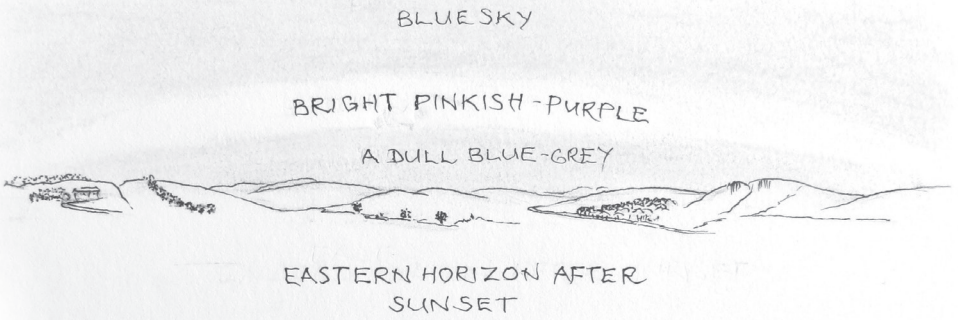 BLUE SKY
BRIGHT PINKISH-PURPLE
A DULL BLUE-GREY
EASTERN HORIZON AFTER
SUNSET